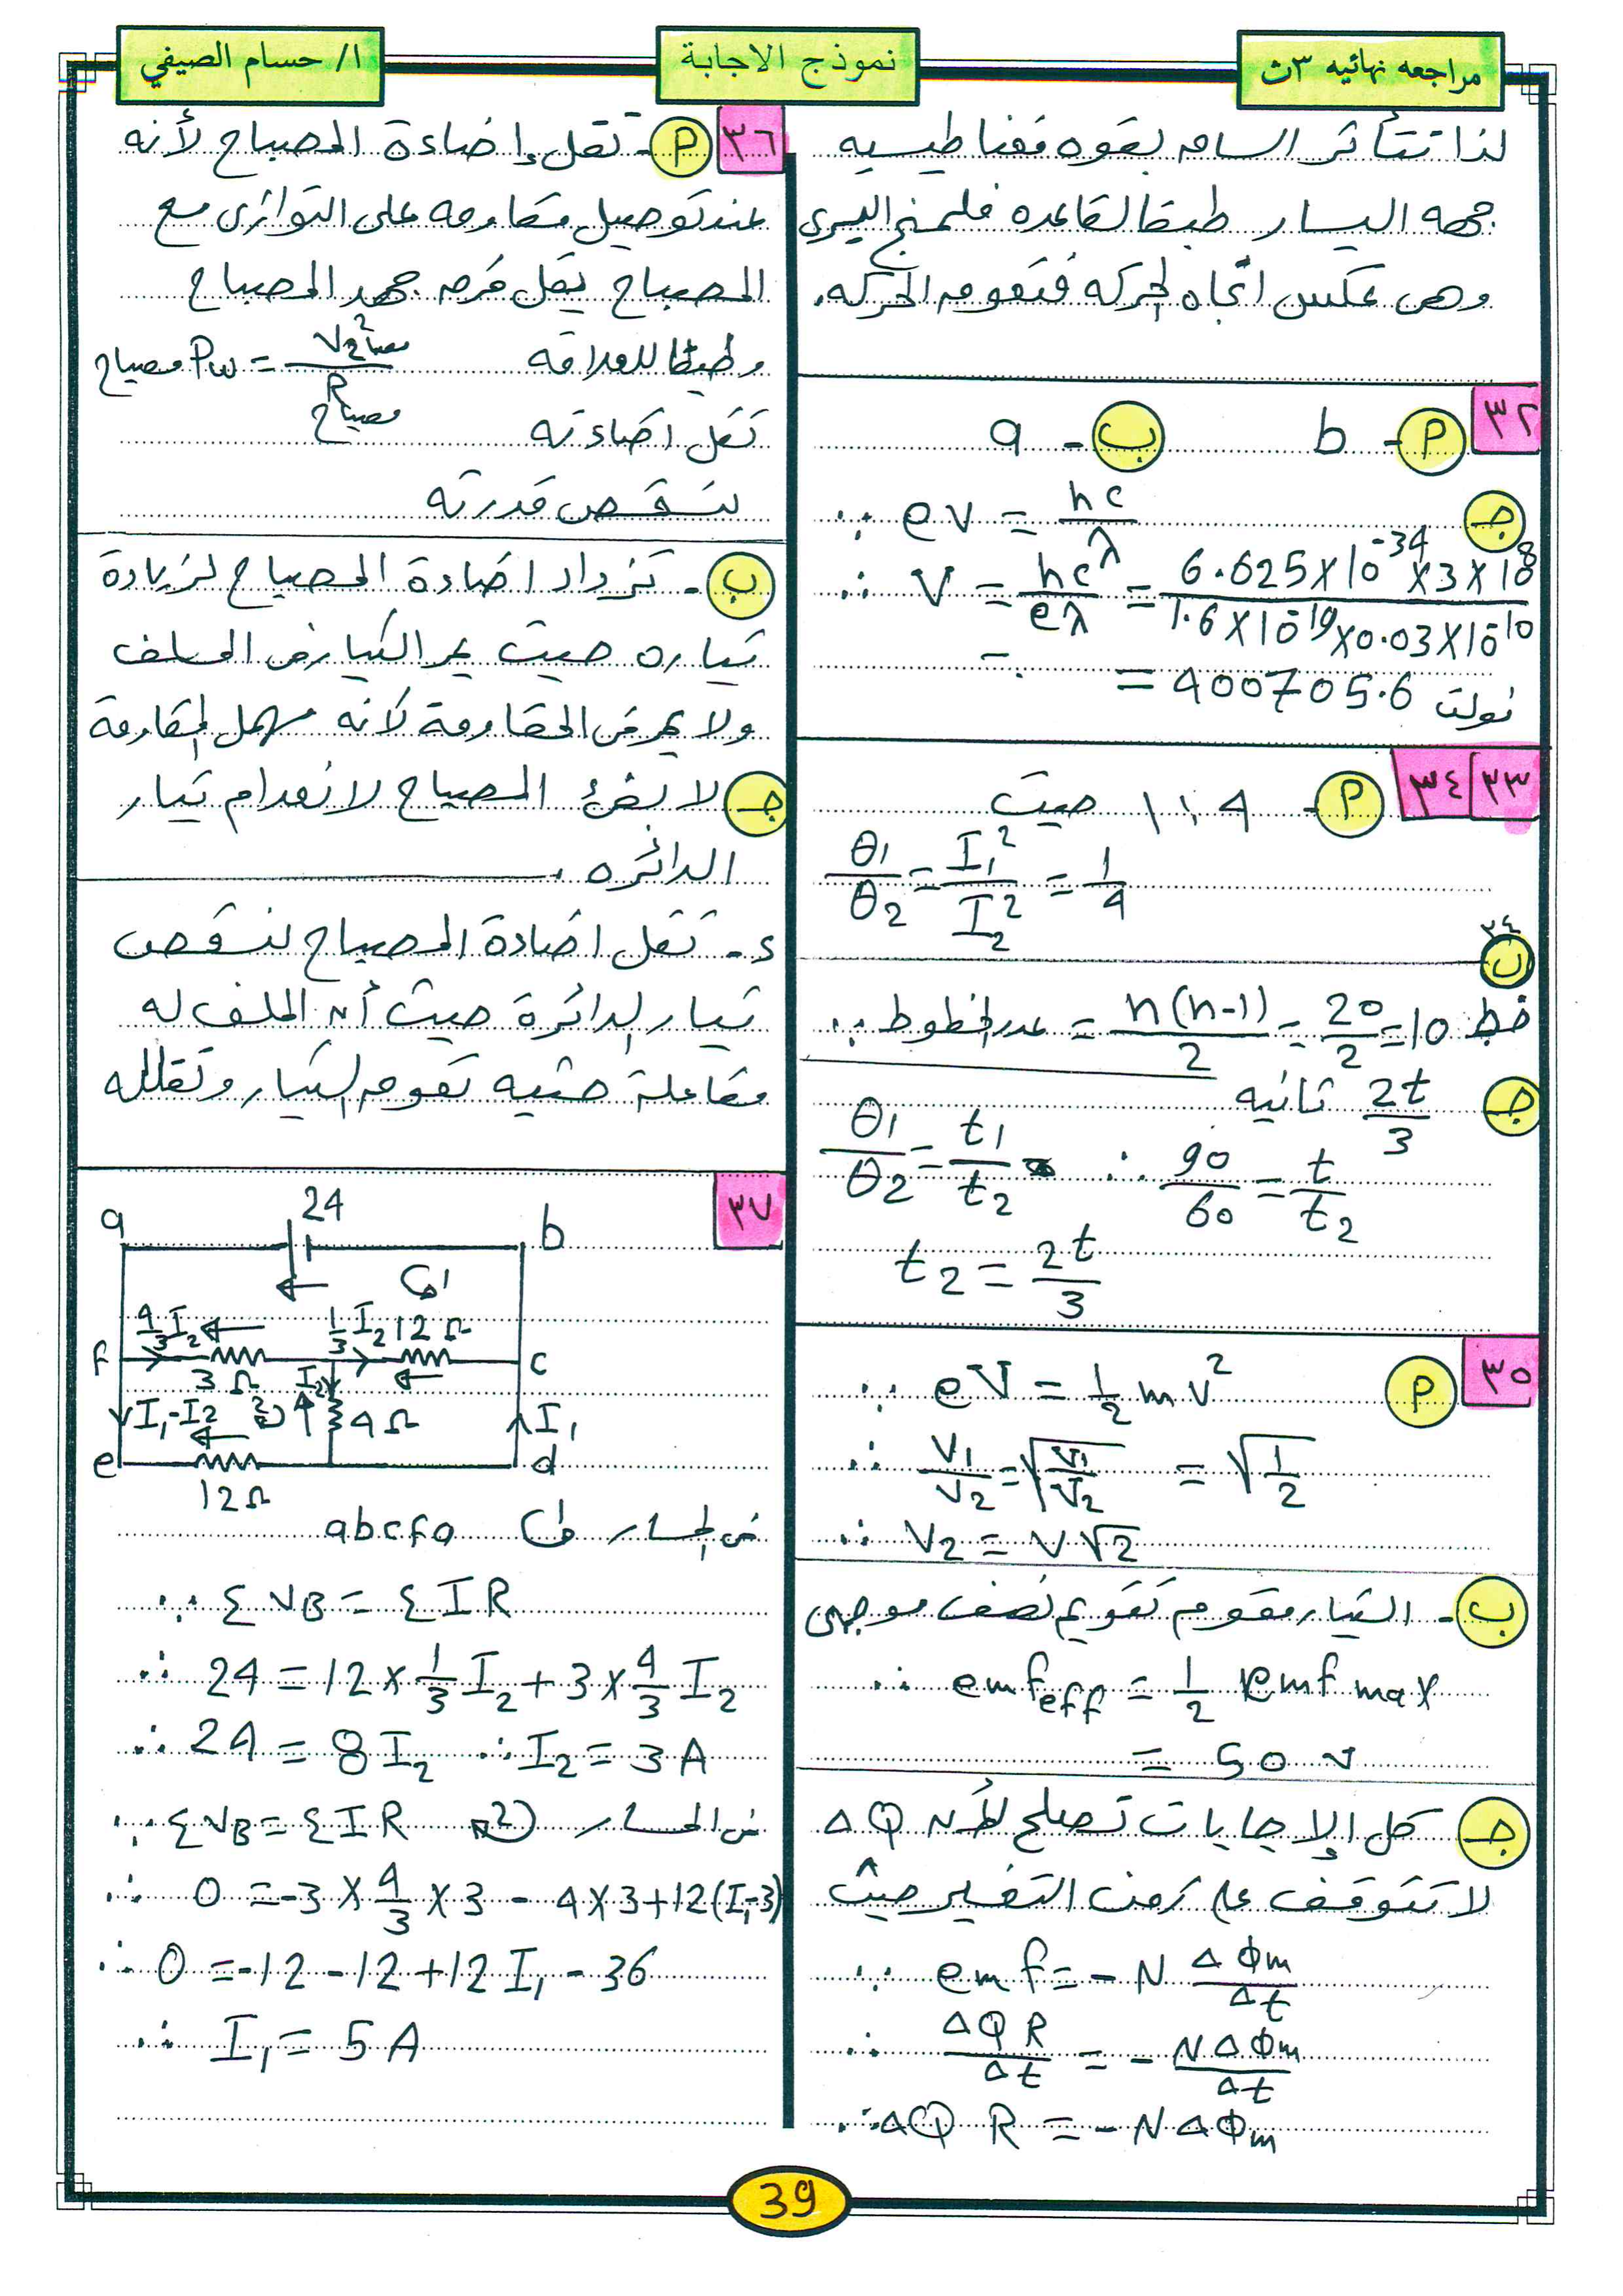 مراجعه نهائيه ٣ث
نموذج الاجابة
ا/ حسام الصيفي
لذا تتأثر الساق بقوه مغناطيسيه
جهه اليسار طبقا لقاعده فلمنج اليسرى
وهى عكس اتجاه الحركه فتقوم الحركه.
٣٢
P - b ب - a
جـ ∵ eV = hc/λ
∴ V = hc/eλ = 6.625×10^-34 ×3×10^8 / 1.6×10^-19 ×0.03×10^-10
= 400705.6 فولت
٣٤/٣٣
P - 1 : 4 حيث
θ1/θ2 = I1²/I2² = 1/4
٣٤
ب
∴ عدد الخطوط = n(n-1)/2 = 20/2 = 10 خط
جـ 2t/3 ثانيه
θ1/θ2 = t1/t2 ∴ 90/60 = t/t2
t2 = 2t/3
٣٥
P ∵ eV = 1/2 m v²
∴ v1/v2 = √(V1/V2) = √(1/2)
∴ v2 = v√2
ب - التيار مقوم تقويم نصف موجى
∴ emf eff = 1/2 emf max
= 50 v
جـ كل الإجابات تصلح لأن ΔQ
لا تتوقف على زمن التغير حيث
∵ emf = - N Δφm/Δt
∴ ΔQ R/Δt = - NΔφm/Δt
∴ ΔQ R = - NΔφm
٣٦
P - تقل إضاءة المصباح لأنه
عند توصيل مقاومه على التوازى مع
المصباح يقل فرق جهد المصباح
وطبقا للعلاقه Pw مصباح = V² مصباح / R مصباح
تقل اضاءته
لنقص قدرته
ب - تزداد اضاءة المصباح لزيادة
تياره حيث يمر التيار فى الملف
ولا يمر فى المقاومة لانه مهمل المقاومة
جـ لا يضئ المصباح لانعدام تيار
الدائره.
د - تقل اضاءة المصباح لنقص
تيار الدائرة حيث أن الملف له
مفاعلة حثيه تقوم التيار وتقلله
٣٧
a 24 b
1
4/3 I2 1/3 I2 12Ω
f 3Ω I2 c
I1-I2 2 4Ω I1
e d
12Ω
فى المسار abcfa
∵ ΣVB = ΣIR
∴ 24 = 12 × 1/3 I2 + 3 × 4/3 I2
∴ 24 = 8 I2 ∴ I2 = 3 A
فى المسار 2 ∵ ΣVB = ΣIR
∴ 0 = -3 × 4/3 × 3 - 4×3 + 12(I1-3)
∴ 0 = -12 - 12 + 12 I1 - 36
∴ I1 = 5 A
39